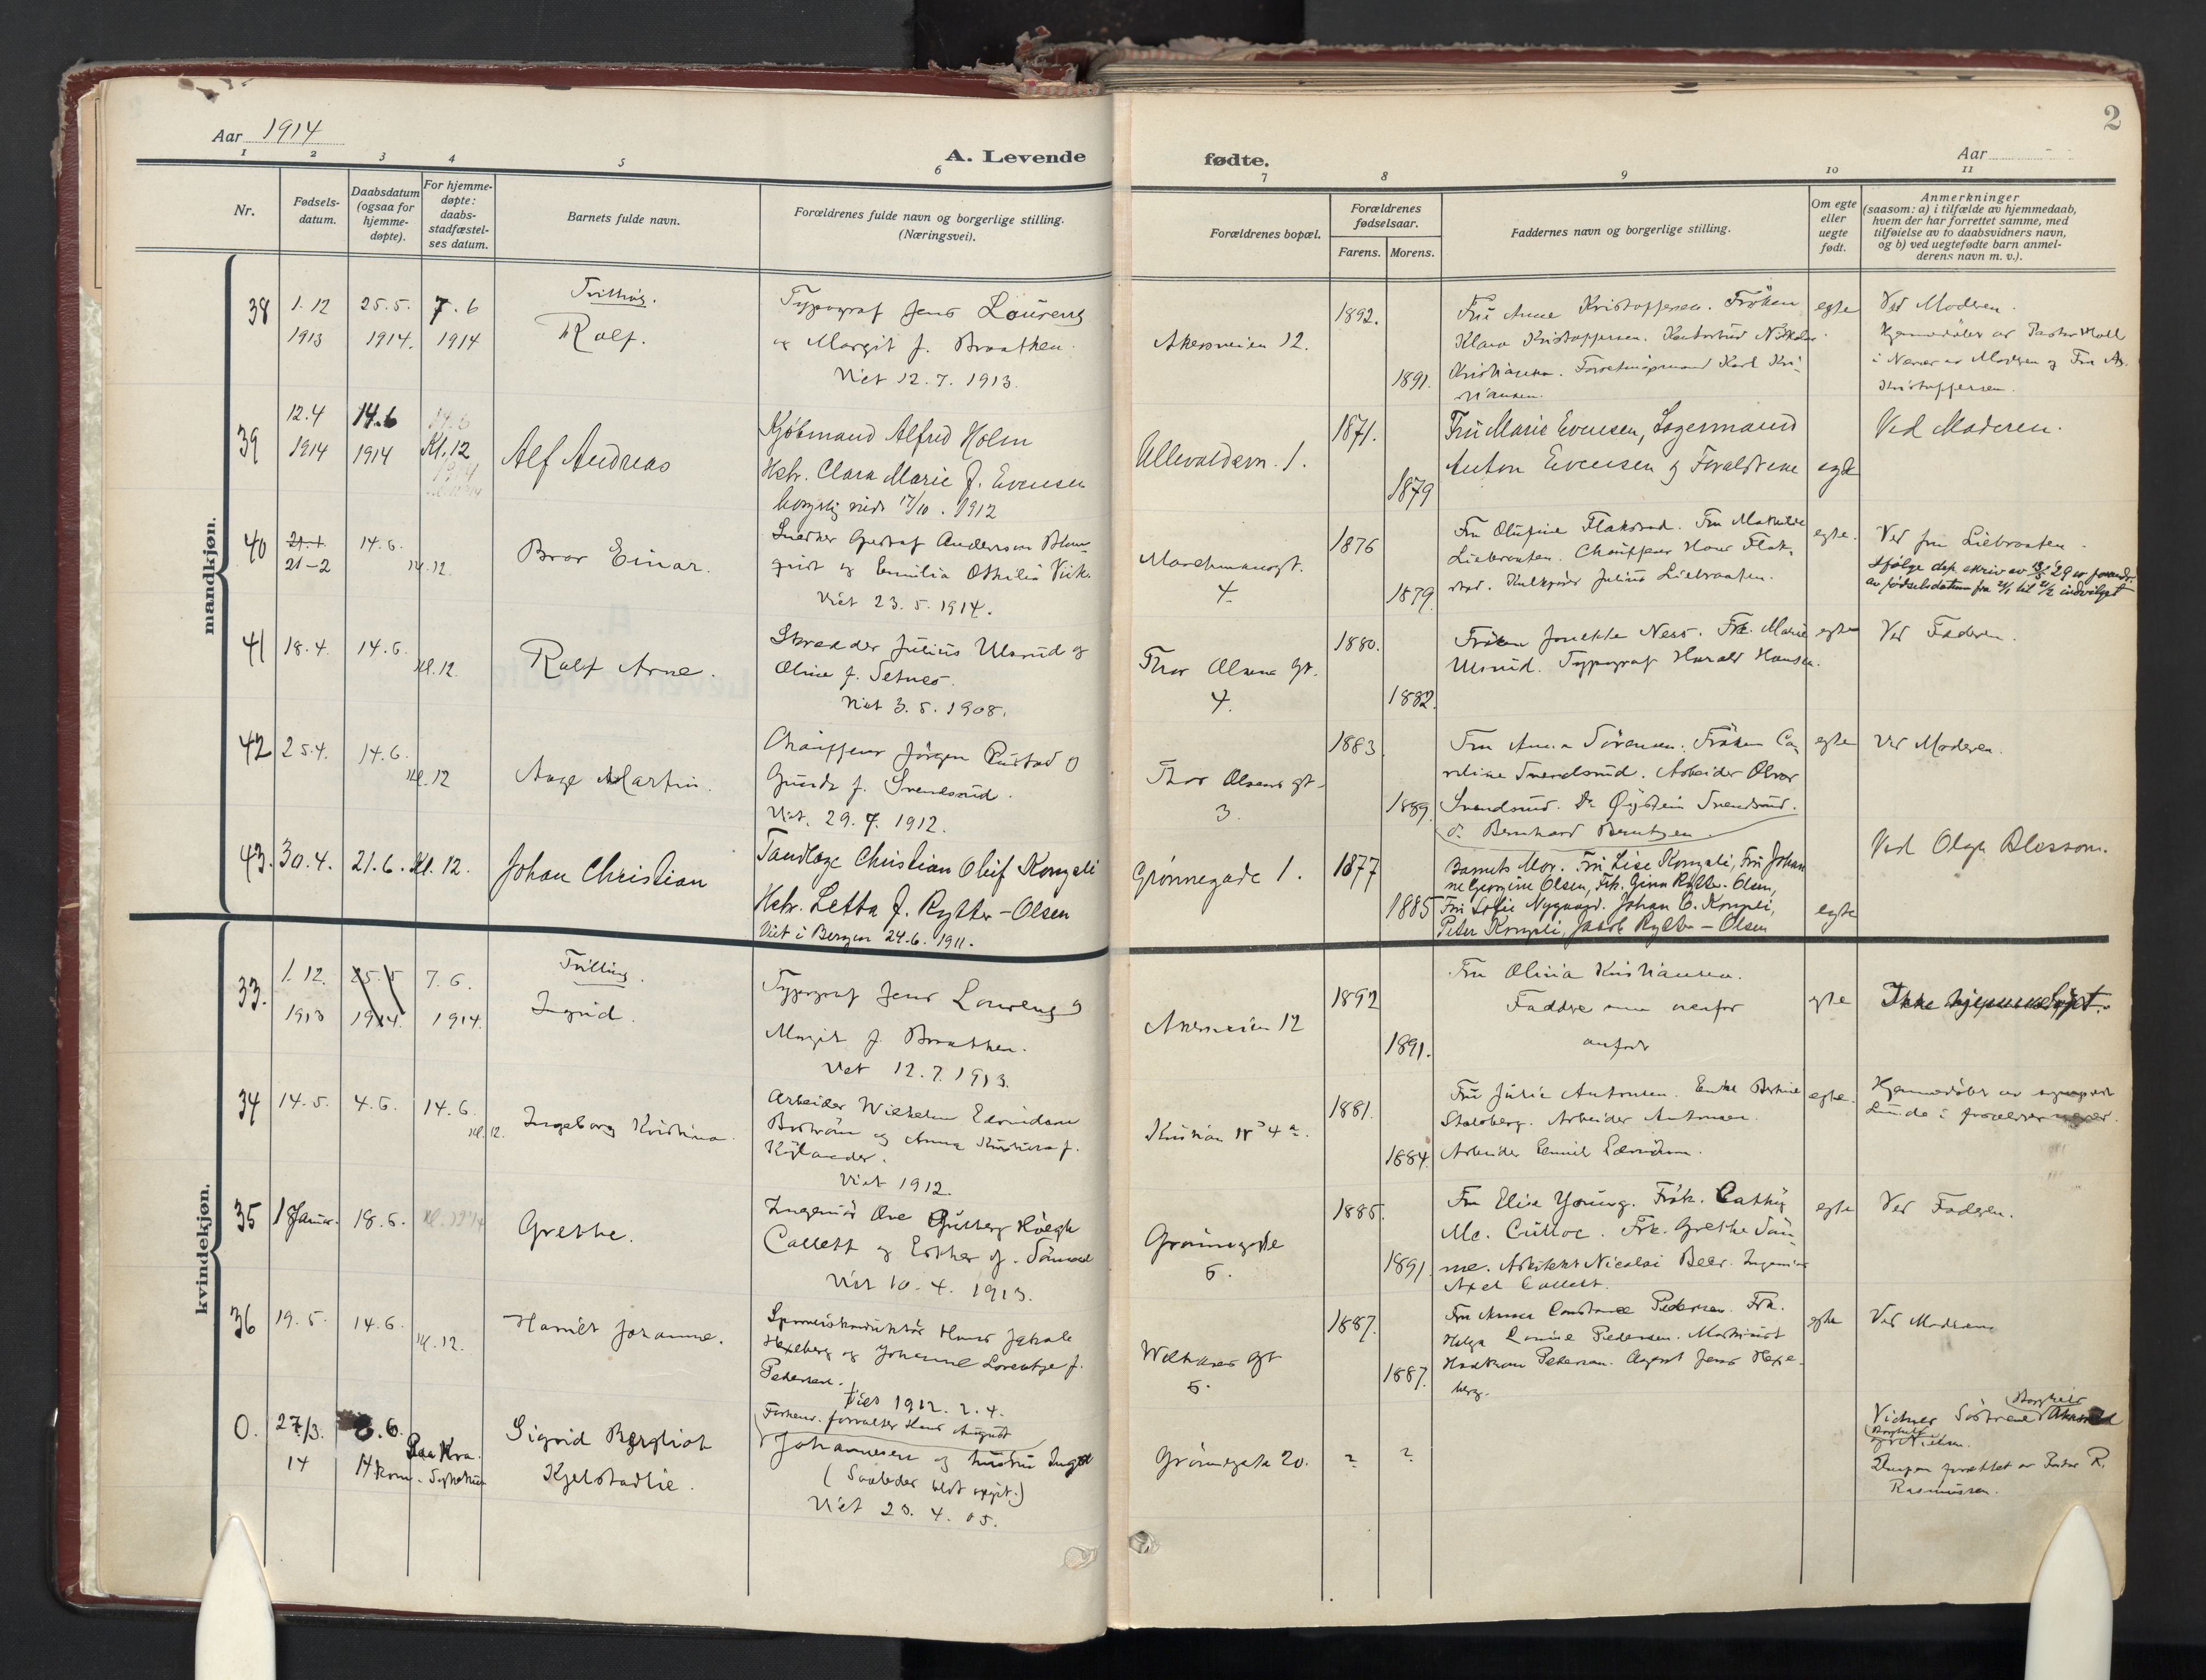 2
Aar 1914
A. Levende
fødte.
Aar
1 2 3 4 5 6 7 8 9 10 11
Nr.
Fødsels-
datum.
Daabsdatum
(ogsaa for
hjemme-
døpte).
For hjemme-
døpte:
daabs-
stadfæstel-
ses datum.
Barnets fulde navn.
Forældrenes fulde navn og borgerlige stilling.
(Næringsvei).
Forældrenes bopæl.
Forældrenes
fødselsaar.
Farens. Morens.
Faddernes navn og borgerlige stilling.
Om egte
eller
uegte
født.
Anmerkninger
(saasom: a) i tilfælde av hjemmedaab,
hvem der har forrettet samme, med
tilføielse av to daabsvidners navn,
og b) ved uegtefødte barn anmel-
derens navn m. v.).
mandkjøn.
38
1.12
1913
25.5.
1914.
7.6
1914
Tvilling.
Rolf.
Typograf Jens Lourens
og Margit f. Braathen.
Viet 12.7.1913.
Akersveien 12.
1892.
1891.
Fru Anne Kristoffersen. Frøken
Klara Kristoffersen.
Kristiansen. Karl Kri-
stiansen.
egte
Ved Moderen.
Hjemmedøbt av Pastor
i Nærvær av Moderen og Fru
Kristoffersen.
39
12.4
1914
14.6
1914
Kl. 12
Alf Andreas
Kjøbmand Alfred Holm
Hstr. Clara Marie f. Evensen
borgerlig viede 17/10. 1912
Ullevoldsvn. 1.
1871.
1879
Fru Marie Evensen, Lagermand
Anton Evensen og Forældrene
egte
Ved Moderen.
40
21.1
21-2
14.6.
Kl.12.
Bror Einar.
Snedker Gustaf Andersson Blom-
quist og Emilia Othilia
Viet 23.5.1914.
4.
1876
1879
Fru Olufine Flakstad. Fru Mathilde
Liebraaten. Chauffeur Hans Flak-
stad. Julius Liebraaten.
egte.
Ved fru Liebraaten.
Ifølge dep. skriv av 13/5 '29 er forandr.
av fødselsdatum fra 21/1 til 21/2 indvilget
41
18.4.
14.6.
Kl.12.
Rolf Arne.
Skrædder Julius Ulsrud og
Oline f. Setnes.
Viet 3.5.1908.
Thor Olsens gt.
4.
1880.
1882.
Frøken Ness. Frk. Marie
Ulsrud. Typograf Harald Hansen.
egte
Ved Faderen.
42
25.4.
14.6.
Kl.12
Aage Martin.
Chauffeur Jørgen Rustad o
Gunda f. Svendsrud.
Viet. 29.7.1912.
Thor Olsens gt.
3.
1883
1889
Fru Anna Sørensen. Frøken Ca-
roline Svendsrud. Arbeider Olvar
Svendsrud. Do Øystein Svendsrud.
do. Bernhard Berntzen.
egte
Ved Moderen.
43.
30.4.
21.6.
Kl. 12.
Johan Christian
Tandlæge Christian Oluf Kongsli
Hstr. Letta f. Rytter-Olsen
Viet i Bergen 24.6.1911.
Grønnegade 1.
1877
1885
Barnets Mor. Fru Lise Kongsli, Fru Johan
ne Georgine Olsen, Frk. Gina Rytter-Olsen,
Fru Sofie Nygaard. Johan C. Kongsli,
Peter Kongsli, Jacob Rytter-Olsen
egte
Ved Olga Blossom.
kvindekjøn.
33.
1.12.
1913
25.5
1914.
7.6.
1914.
Tvilling.
Ingrid.
Typograf Jens Lourens o
Margit f. Braathen.
Viet 12.7.1913.
Akersveien 12
1892
1891.
Fru Olivia Kristiansen.
Faddere som ovenfor
anført
egte
Ikke hjemmedøpt.
34
14.5.
4.6.
14.6.
Kl.12.
Ingeborg Kristina.
Arbeider Wilhelm Edvindson
Boström og Anna Kristina f.
Viet 1912.
1881.
1884.
Fru Julie Antonsen.
Arbeider Antonsen.
Arbeider Emil
egte.
Hjemmedøbt av
Lunde i forældrenes nærvær.
35
1 Januar.
18.6.
Grethe.
Ingeniør Ove Gulberg Høegh
Collett og Esther f. Sømme
Viet 10.4.1913.
Grønnegade
5.
1885.
1891.
Fru Elise Young. Frøk. Cathy
Mc. Culloc. Frk. Grethe Søm-
me. Arkitekt Nicolai Beer. Ingeniør
Axel Collett.
egte
Ved Faderen.
36
19.5.
14.6.
Kl.12.
Harriet Johanne.
Sporveiskonduktør Hans Jakob
Hexeberg og Johanne Lorentze f.
Pedersen.
Viet 1912. 2.4.
gt
5.
1887.
1887.
Fru Anna Constance Pedersen. Frk.
Helga Louise Pedersen. Maskinist
Pedersen. Agent Jens Hexe-
berg.
egte
Ved Moderen
0.
27/3.
14
8.6.
14
Paa Kra.
kom. Sykehus
Sigrid Bergliot
Kjelstadlie.
Forhenv. forvalter Hans August
Johannesen og hustru Inga
(Saaledes blot opgit.)
Viet 23.4.05.
Grønnegate 20.
?
?
Vidner Søstrene Borghild
og Nielsen.
Daapen forrettet av Pastor R.
Rasmussen.